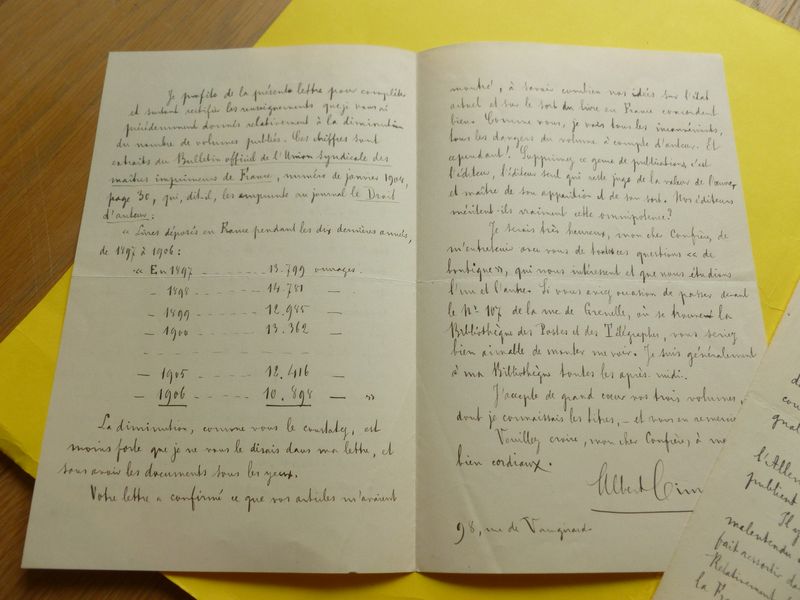 Je profite de la présente lettre pour compléter
et surtout rectifier les renseignements que je vous ai
précédemment donnés relativement à la diminution
du nombre de volumes publiés. Ces chiffres sont
extraits du Bulletin officiel de l'Union syndicale des
maîtres imprimeurs de France, numéro de janvier 1908,
page 30, qui, dit-il, les emprunte au journal le Droit
d'auteur :
« Livres déposés en France pendant les dix dernières années,
de 1897 à 1906 :
« En 1897 - - - - - - 13.799 ouvrages.
— 1898 - - - - - - 14.781 —
— 1899 - - - - - - 12.985 —
— 1900 - - - - - - 13.362 —
— 1905 - - - - - - 12.416 —
— 1906 - - - - - - 10.898 — »
La diminution, comme vous le constatez, est
moins forte que je ne vous le disais dans ma lettre, et
sans avoir les documents sous les yeux.
Votre lettre a confirmé ce que vos articles m'avaient
montré, à savoir combien nos idées sur l'état
actuel et sur le sort du livre en France concordent
bien. Comme vous, je vois tous les inconvénients,
tous les dangers du volume à compte d'auteur. Et
cependant ! Supprimez ce genre de publications, c'est
l'éditeur, l'éditeur seul qui reste juge de la valeur de l'œuvre,
et maître de son apparition et de son sort. Nos éditeurs
méritent-ils vraiment cette omnipotence ?
Je serais très heureux, mon cher Confrère, de
m'entretenir avec vous de toutes ces questions « de
boutique », qui nous intéressent et que nous étudions
l'un et l'autre. Si vous aviez occasion de passer devant
le N° 107 de la rue de Grenelle, où se trouve la
Bibliothèque des Postes et des Télégraphes, vous seriez
bien aimable de monter me voir. Je suis généralement
à ma Bibliothèque toutes les après-midi.
J'accepte de grand cœur vos trois volumes,
dont je connaissais les titres, — et vous en remercie.
Veuillez croire, mon cher Confrère, à me
bien cordiaux.
Albert Cim
98, rue de Vaugirard
l'Allem
publient
Il y
malentendu
fait ressortir da
Relativement